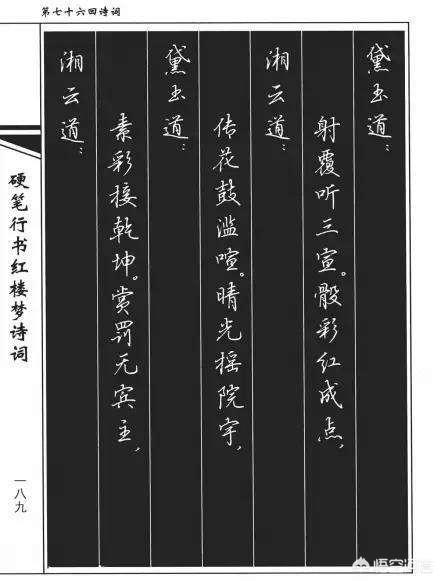 第七十六回诗词
黛玉道：
射覆听三宣。骰彩红成点，
湘云道：
传花鼓滥喧。晴光摇院宇，
黛玉道：
素彩接乾坤。赏罚无宾主，
湘云道：
硬笔行书红楼梦诗词
一八九
悟空问答